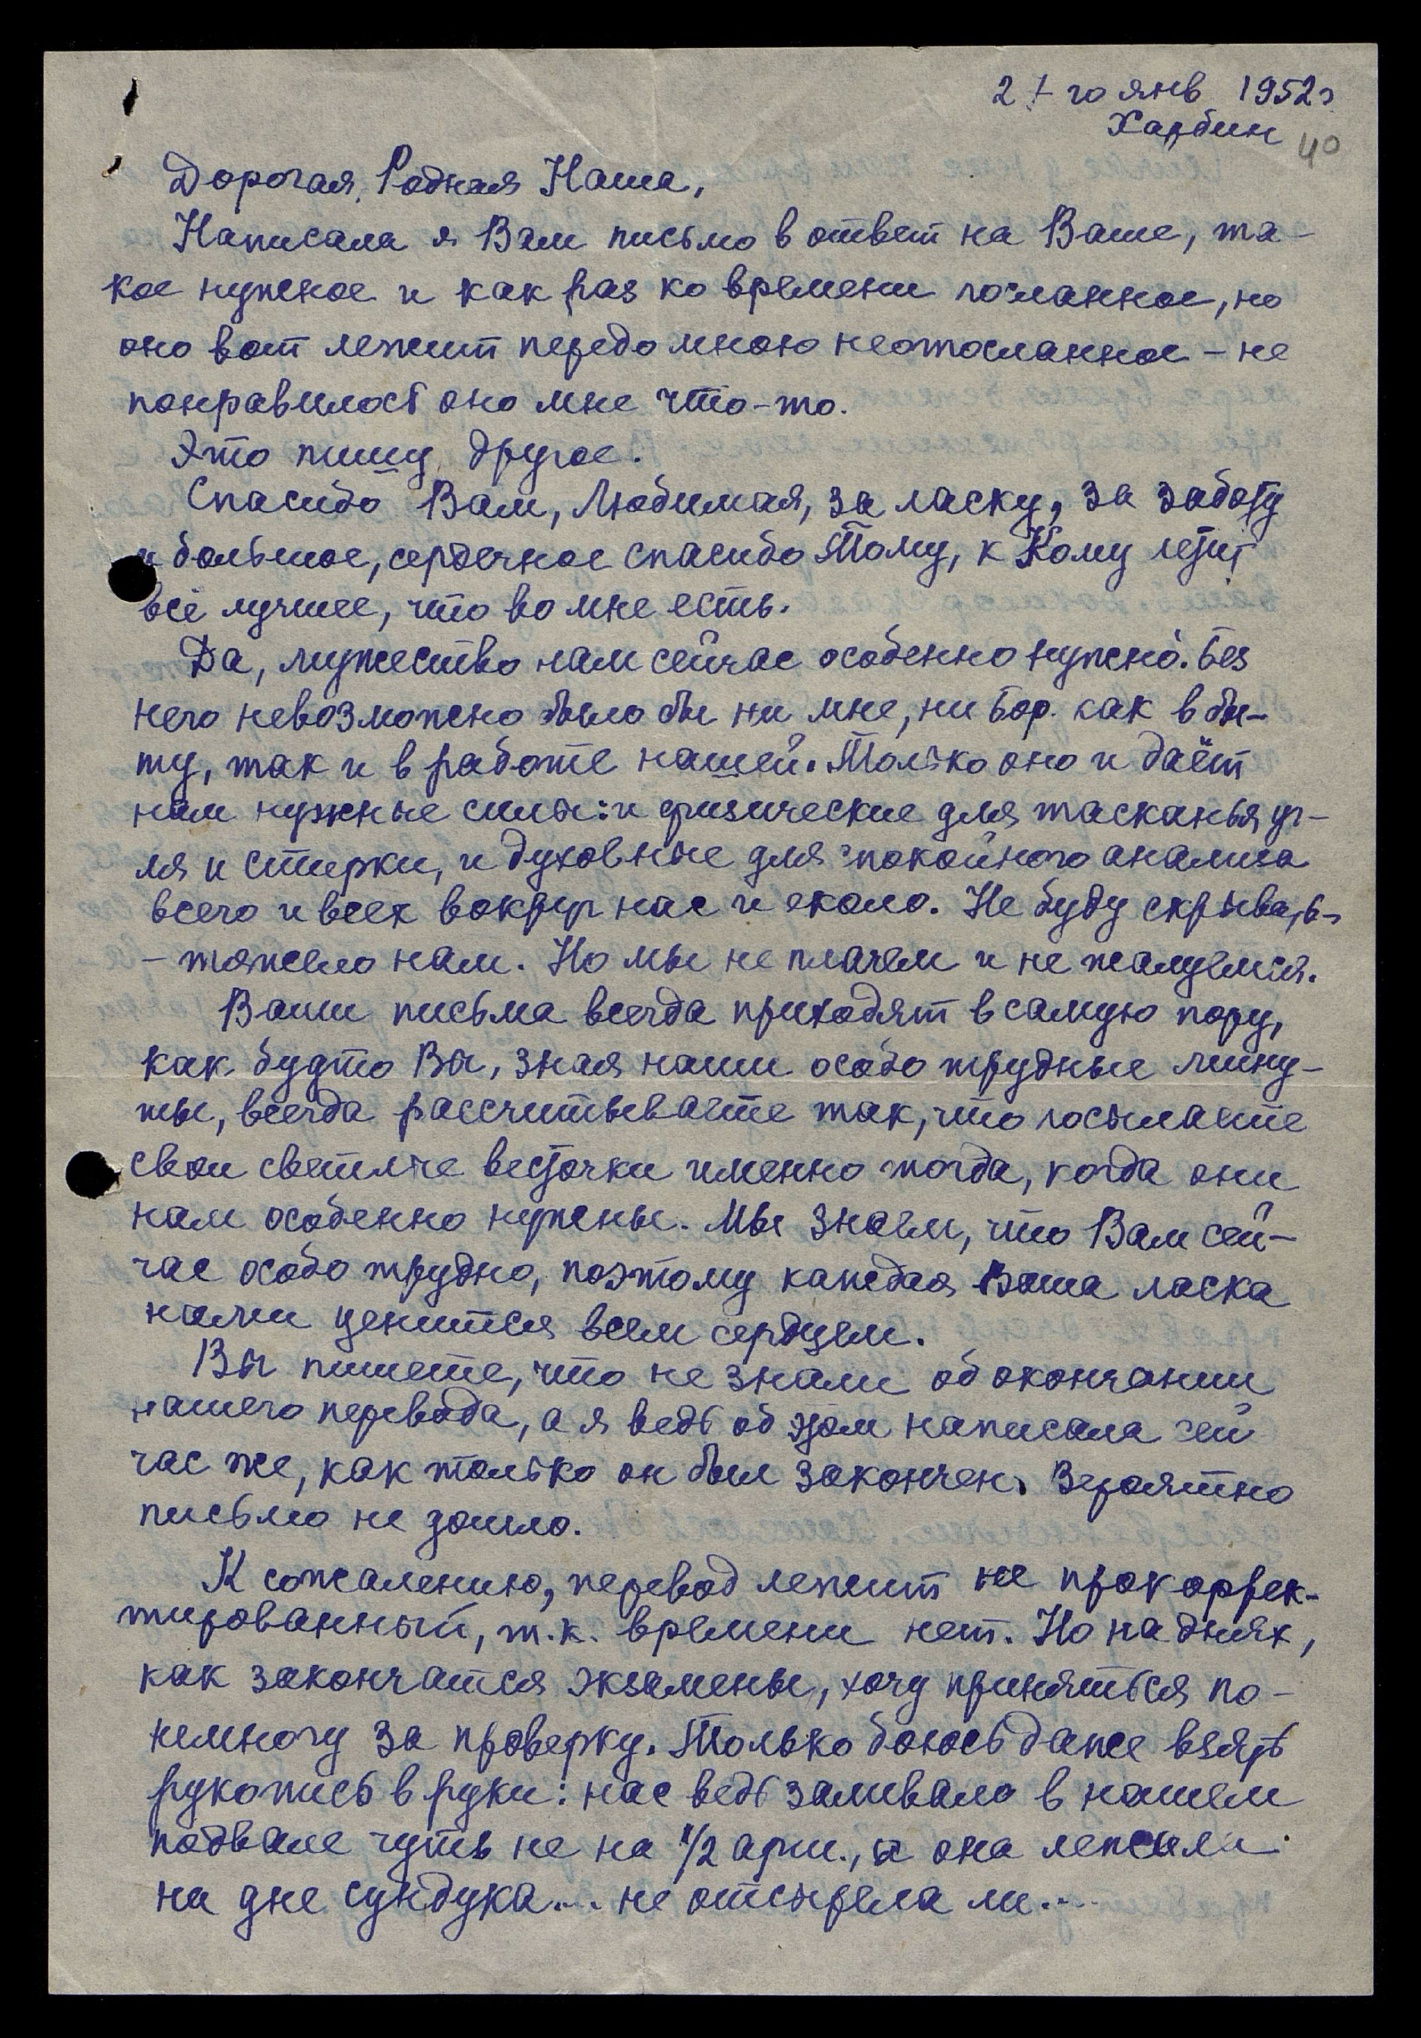 27-го янв 1952г
Харбин
40
Дорогая, Родная Наша,
Написала я Вам письмо в ответ на Ваше, та-
кое нужное и как раз ко времени посланное, но
оно вот лежит передо мною неотосланное - не
понравилось оно мне что-то.
Это пишу другое.
Спасибо Вам, Любимая, за ласку, за заботу
и большое, сердечное спасибо Тому, к Кому летит
всё лучшее, что во мне есть.
Да, мужество нам сейчас особенно нужно. Без
него невозможно было бы ни мне, ни Бор. как в бы-
ту, так и в работе нашей. Только оно и даёт
нам нужные силы: и физические для тасканья уг-
ля и стирки, и духовные для спокойного анализа
всего и всех вокруг нас и около. Не буду скрывать-
- тяжело нам. Но мы не плачем и не жалуемся.
Ваши письма всегда приходят в самую пору,
как будто Вы, зная наши особо трудные мину-
ты, всегда рассчитываете так, что посылаете
свои светлые весточки именно тогда, когда они
нам особенно нужны. Мы знаем, что Вам сей-
час особо трудно, поэтому каждая Ваша ласка
нами ценится всем сердцем.
Вы пишете, что не знали об окончании
нашего перевода, а я ведь об этом написала сей
час же, как только он был закончен. Вероятно
письмо не дошло.
К сожалению, перевод лежит не прокоррек-
тированный, т.к. времени нет. Но на днях,
как закончатся экзамены, хочу приняться по-
немногу за проверку. Только боюсь даже взять
рукопись в руки: нас ведь заливало в нашем
подвале чуть не на 1/2 арш., а она лежала
на дне сундука... не отсырела ли...